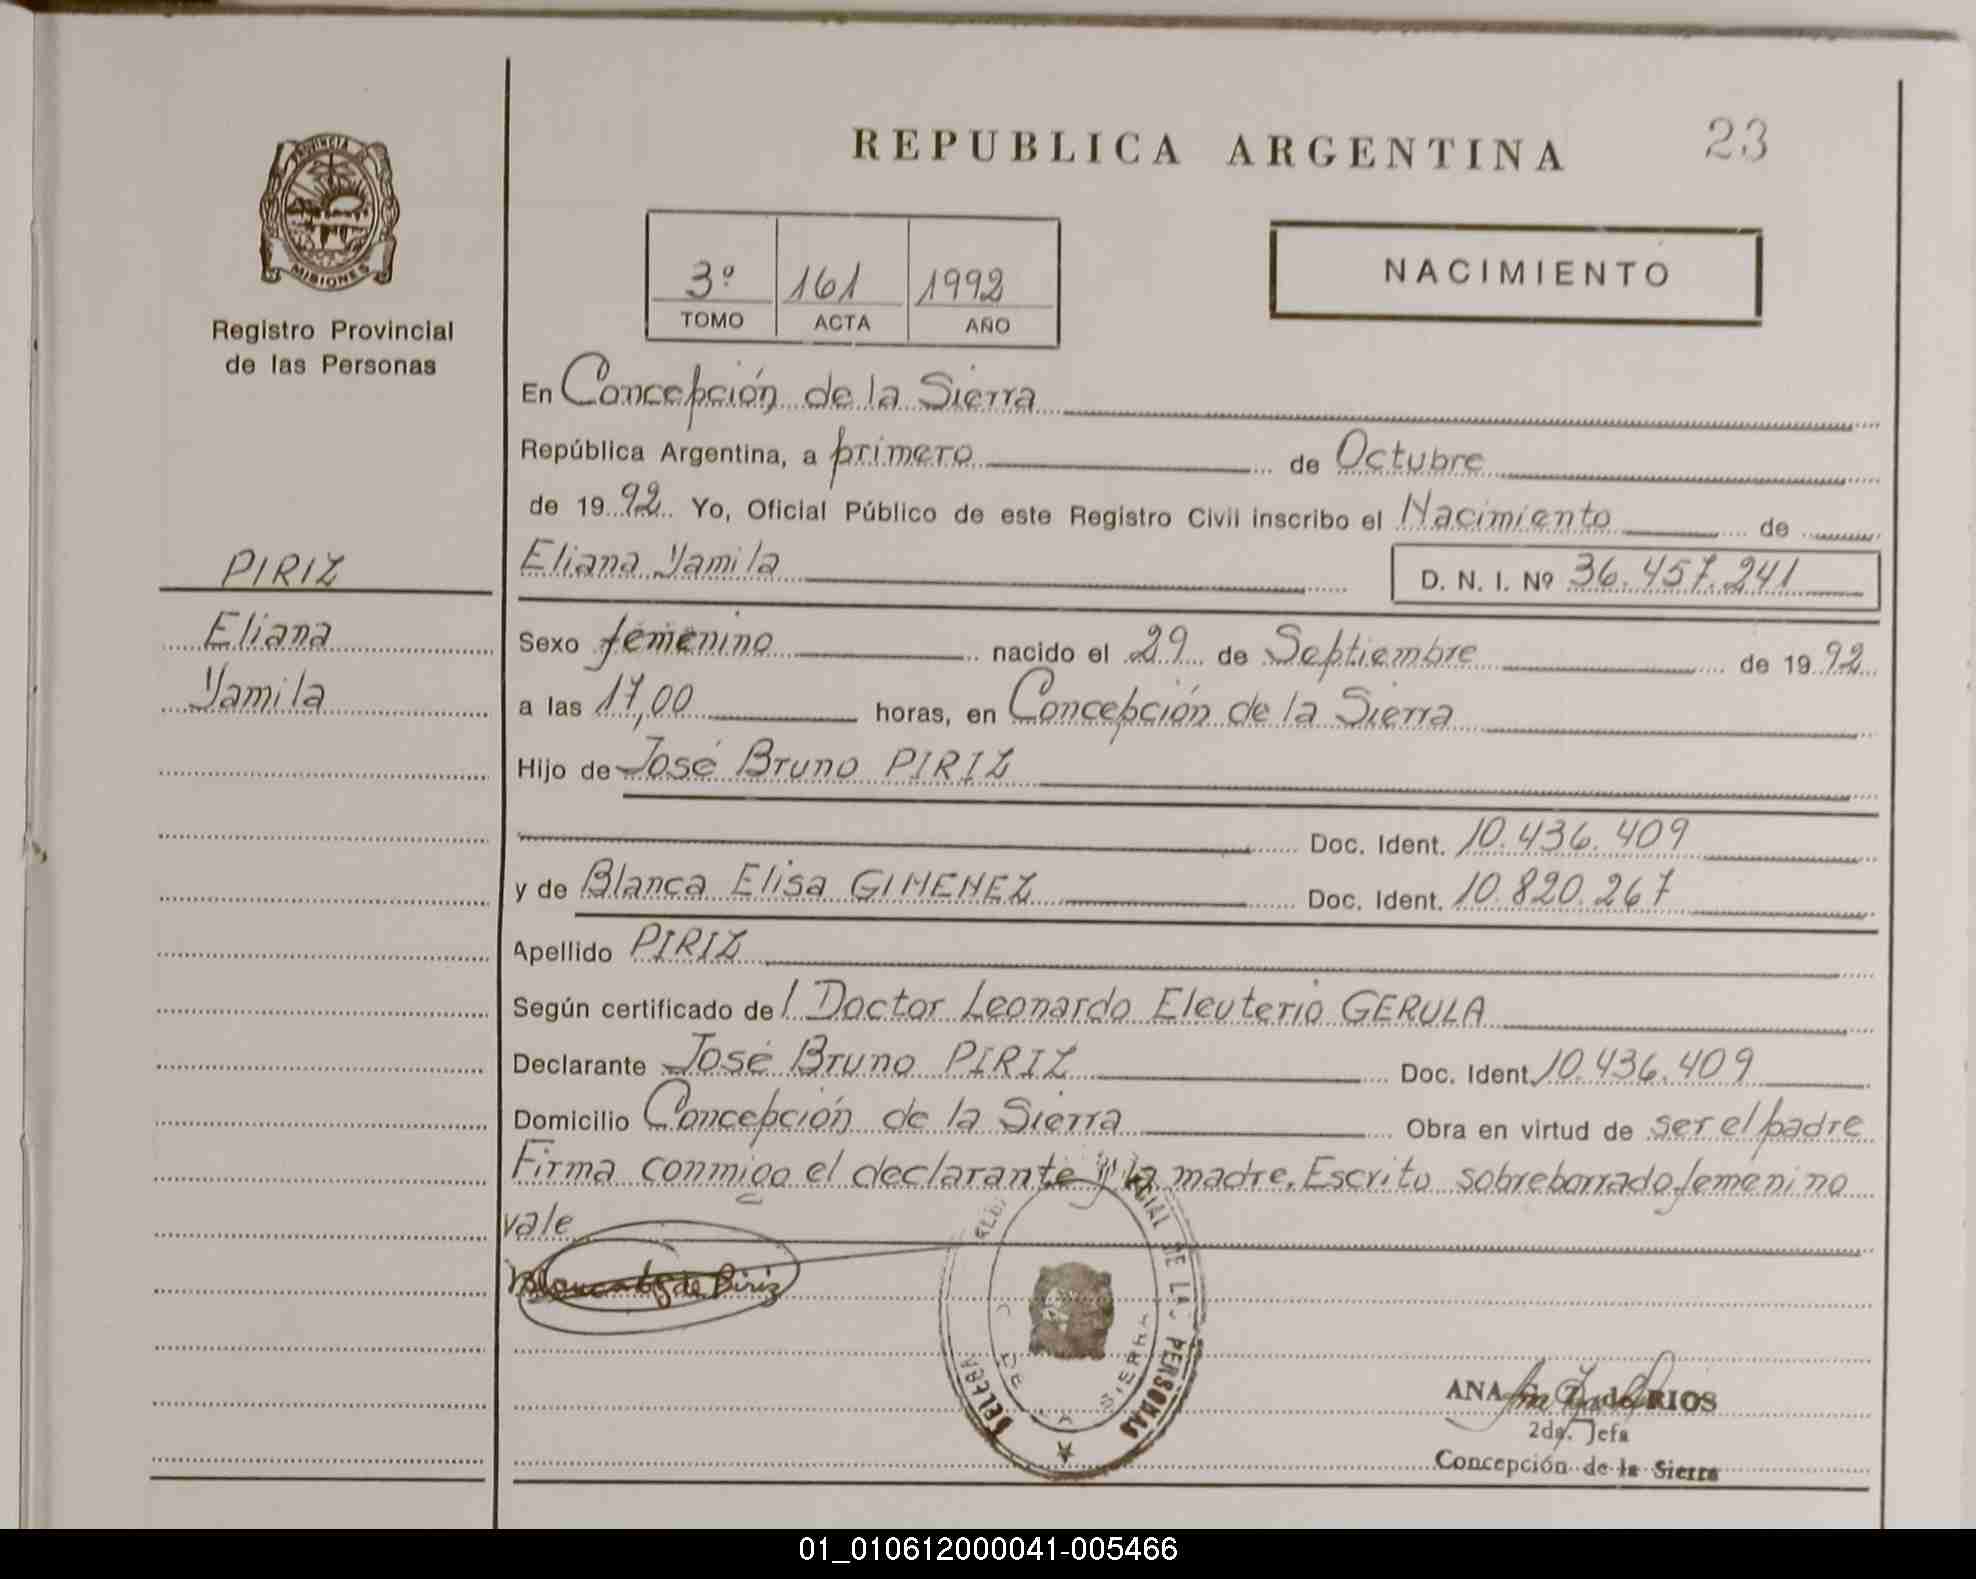 REPUBLICA ARGENTINA
23
PROVINCIA DE
MISIONES
Registro Provincial
de las Personas
3º 161 1992
TOMO ACTA AÑO
NACIMIENTO
En Concepción de la Sierra
República Argentina, a primero de Octubre
de 1992 Yo, Oficial Público de este Registro Civil inscribo el Nacimiento de
Eliana Yamila D. N. I. Nº 36.457.241
PIRIZ
Eliana
Yamila
Sexo femenino nacido el 29 de Septiembre de 1992
a las 17,00 horas, en Concepción de la Sierra
Hijo de José Bruno PIRIZ
Doc. Ident. 10.436.409
y de Blanca Elisa GIMENEZ Doc. Ident. 10.820.267
Apellido PIRIZ
Según certificado del Doctor Leonardo Eleuterio GERULA
Declarante José Bruno PIRIZ Doc. Ident. 10.436.409
Domicilio Concepción de la Sierra Obra en virtud de ser el padre
Firma conmigo el declarante y la madre. Escrito sobreborrado femenino
vale
de Piriz
DE LAS PERSONAS
SIERRA
ANA RIOS
2da. Jefa
Concepción de la Sierra
01_010612000041-005466